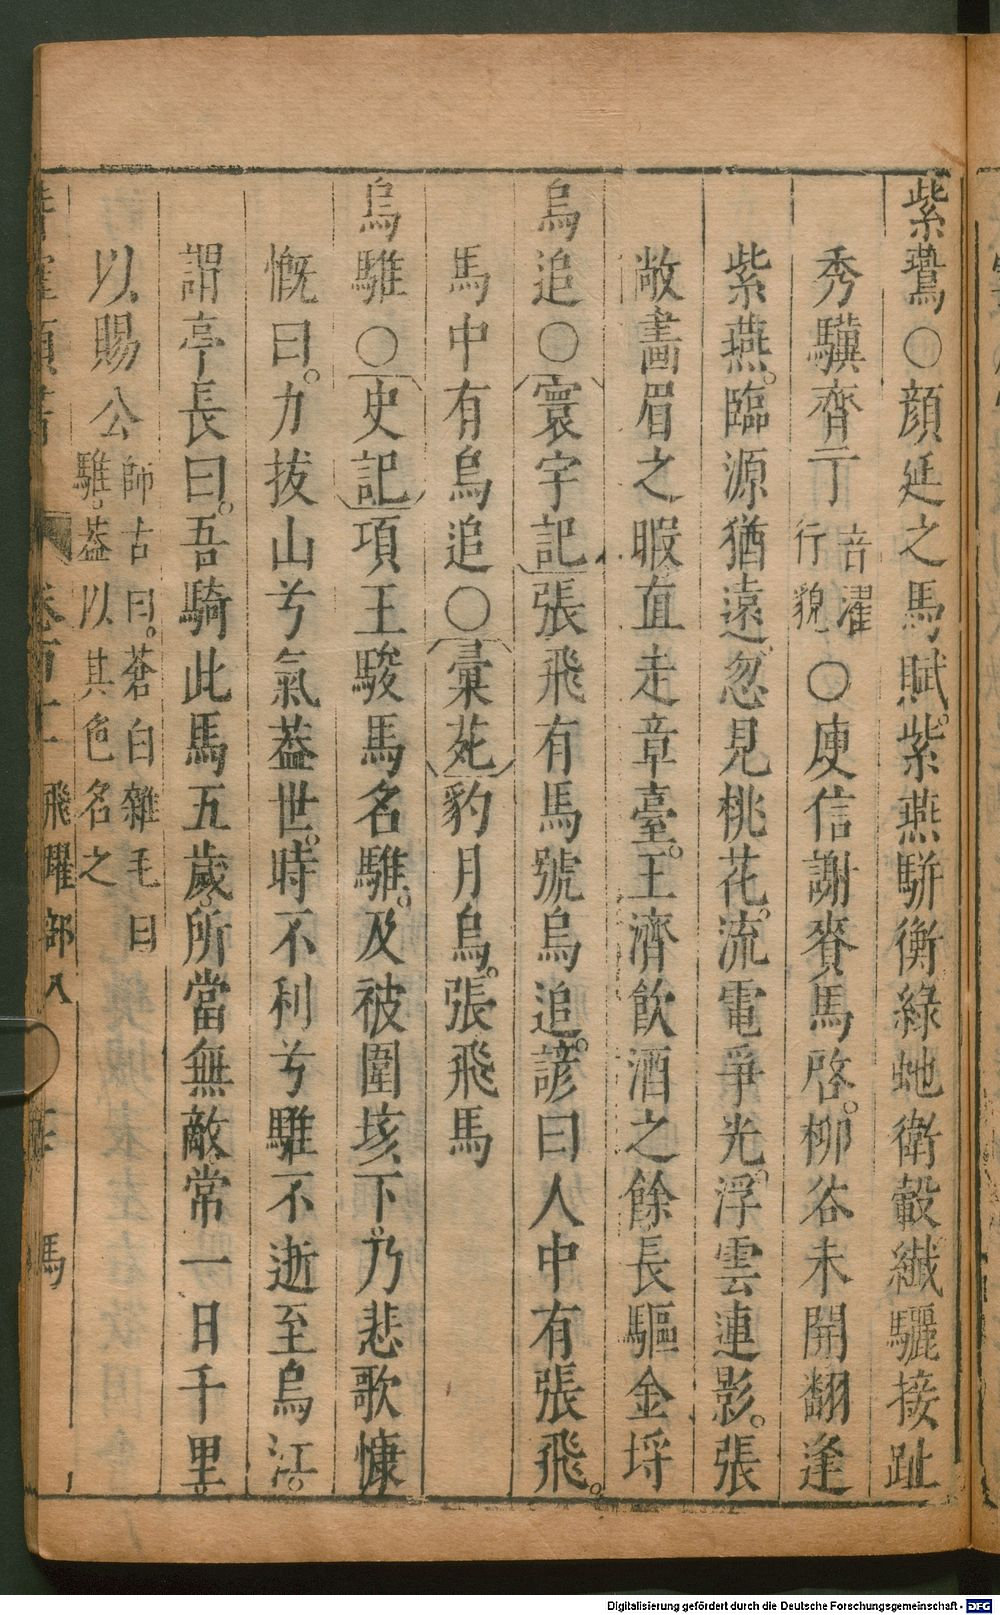 紫鷰○顏延之馬賦。紫燕駢衡綠虵衛轂纎驪接趾
秀騏齊亍音濯行貌○庾信謝賚馬啓。柳谷未開翻逢
紫燕。臨源猶遠。忽見桃花。流電爭光。浮雲連影。張
敞畵眉之暇直走章臺。王濟飮酒之餘長驅金埒
烏追○寰宇記張飛有馬號烏追。諺曰人中有張飛。
馬中有烏追○彚苑豹月烏。張飛馬
烏騅○史記項王駿馬名騅。及被圍垓下。乃悲歌慷
慨曰。力拔山兮氣葢世。時不利兮騅不逝至烏江。
謂亭長曰。吾騎此馬五歲。所當無敵常一日千里。
以賜公師古曰。蒼白雜毛曰騅。葢以其色名之
飛曜部八 馬
Digitalisierung gefördert durch die Deutsche Forschungsgemeinschaft - DFG